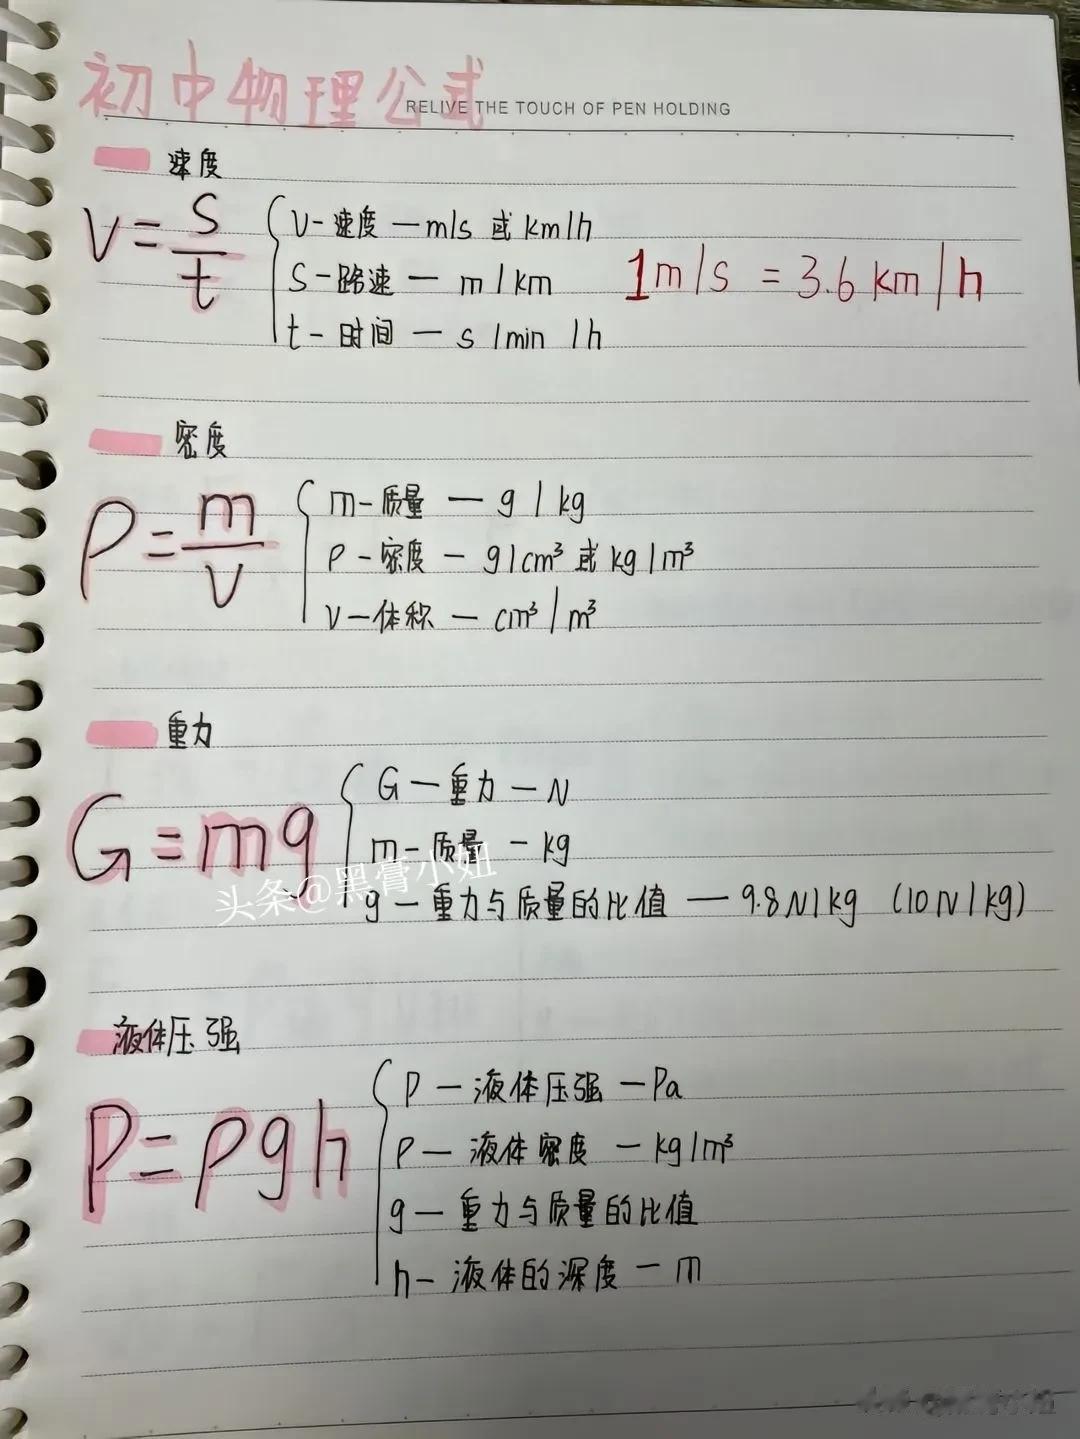 初中物理公式
RELIVE THE TOUCH OF PEN HOLDING
速度
V=s/t
V-速度—m/s 或 km/h
S-路速— m/km
t-时间—s/min/h
1m/s = 3.6 km/h
密度
ρ=m/V
m-质量—g/kg
ρ-密度—g/cm³ 或 kg/m³
V-体积—cm³/m³
重力
G=mg
G—重力—N
m-质量-kg
g—重力与质量的比值—9.8N/kg (10N/kg)
头条@黑膏小妞
液体压强
P=ρgh
P—液体压强—Pa
ρ—液体密度—kg/m³
g—重力与质量的比值
h-液体的深度—m